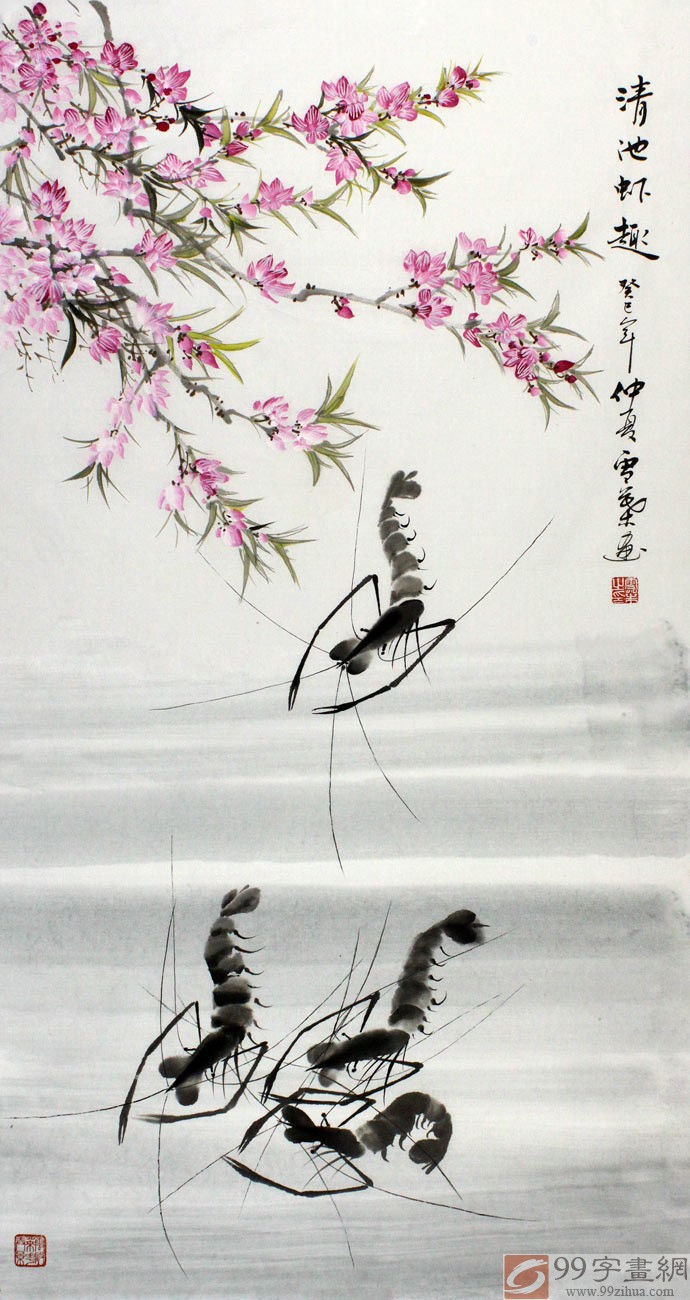 清池虾趣
癸巳年仲夏雪葉画
99字畫網
www.99zihua.com